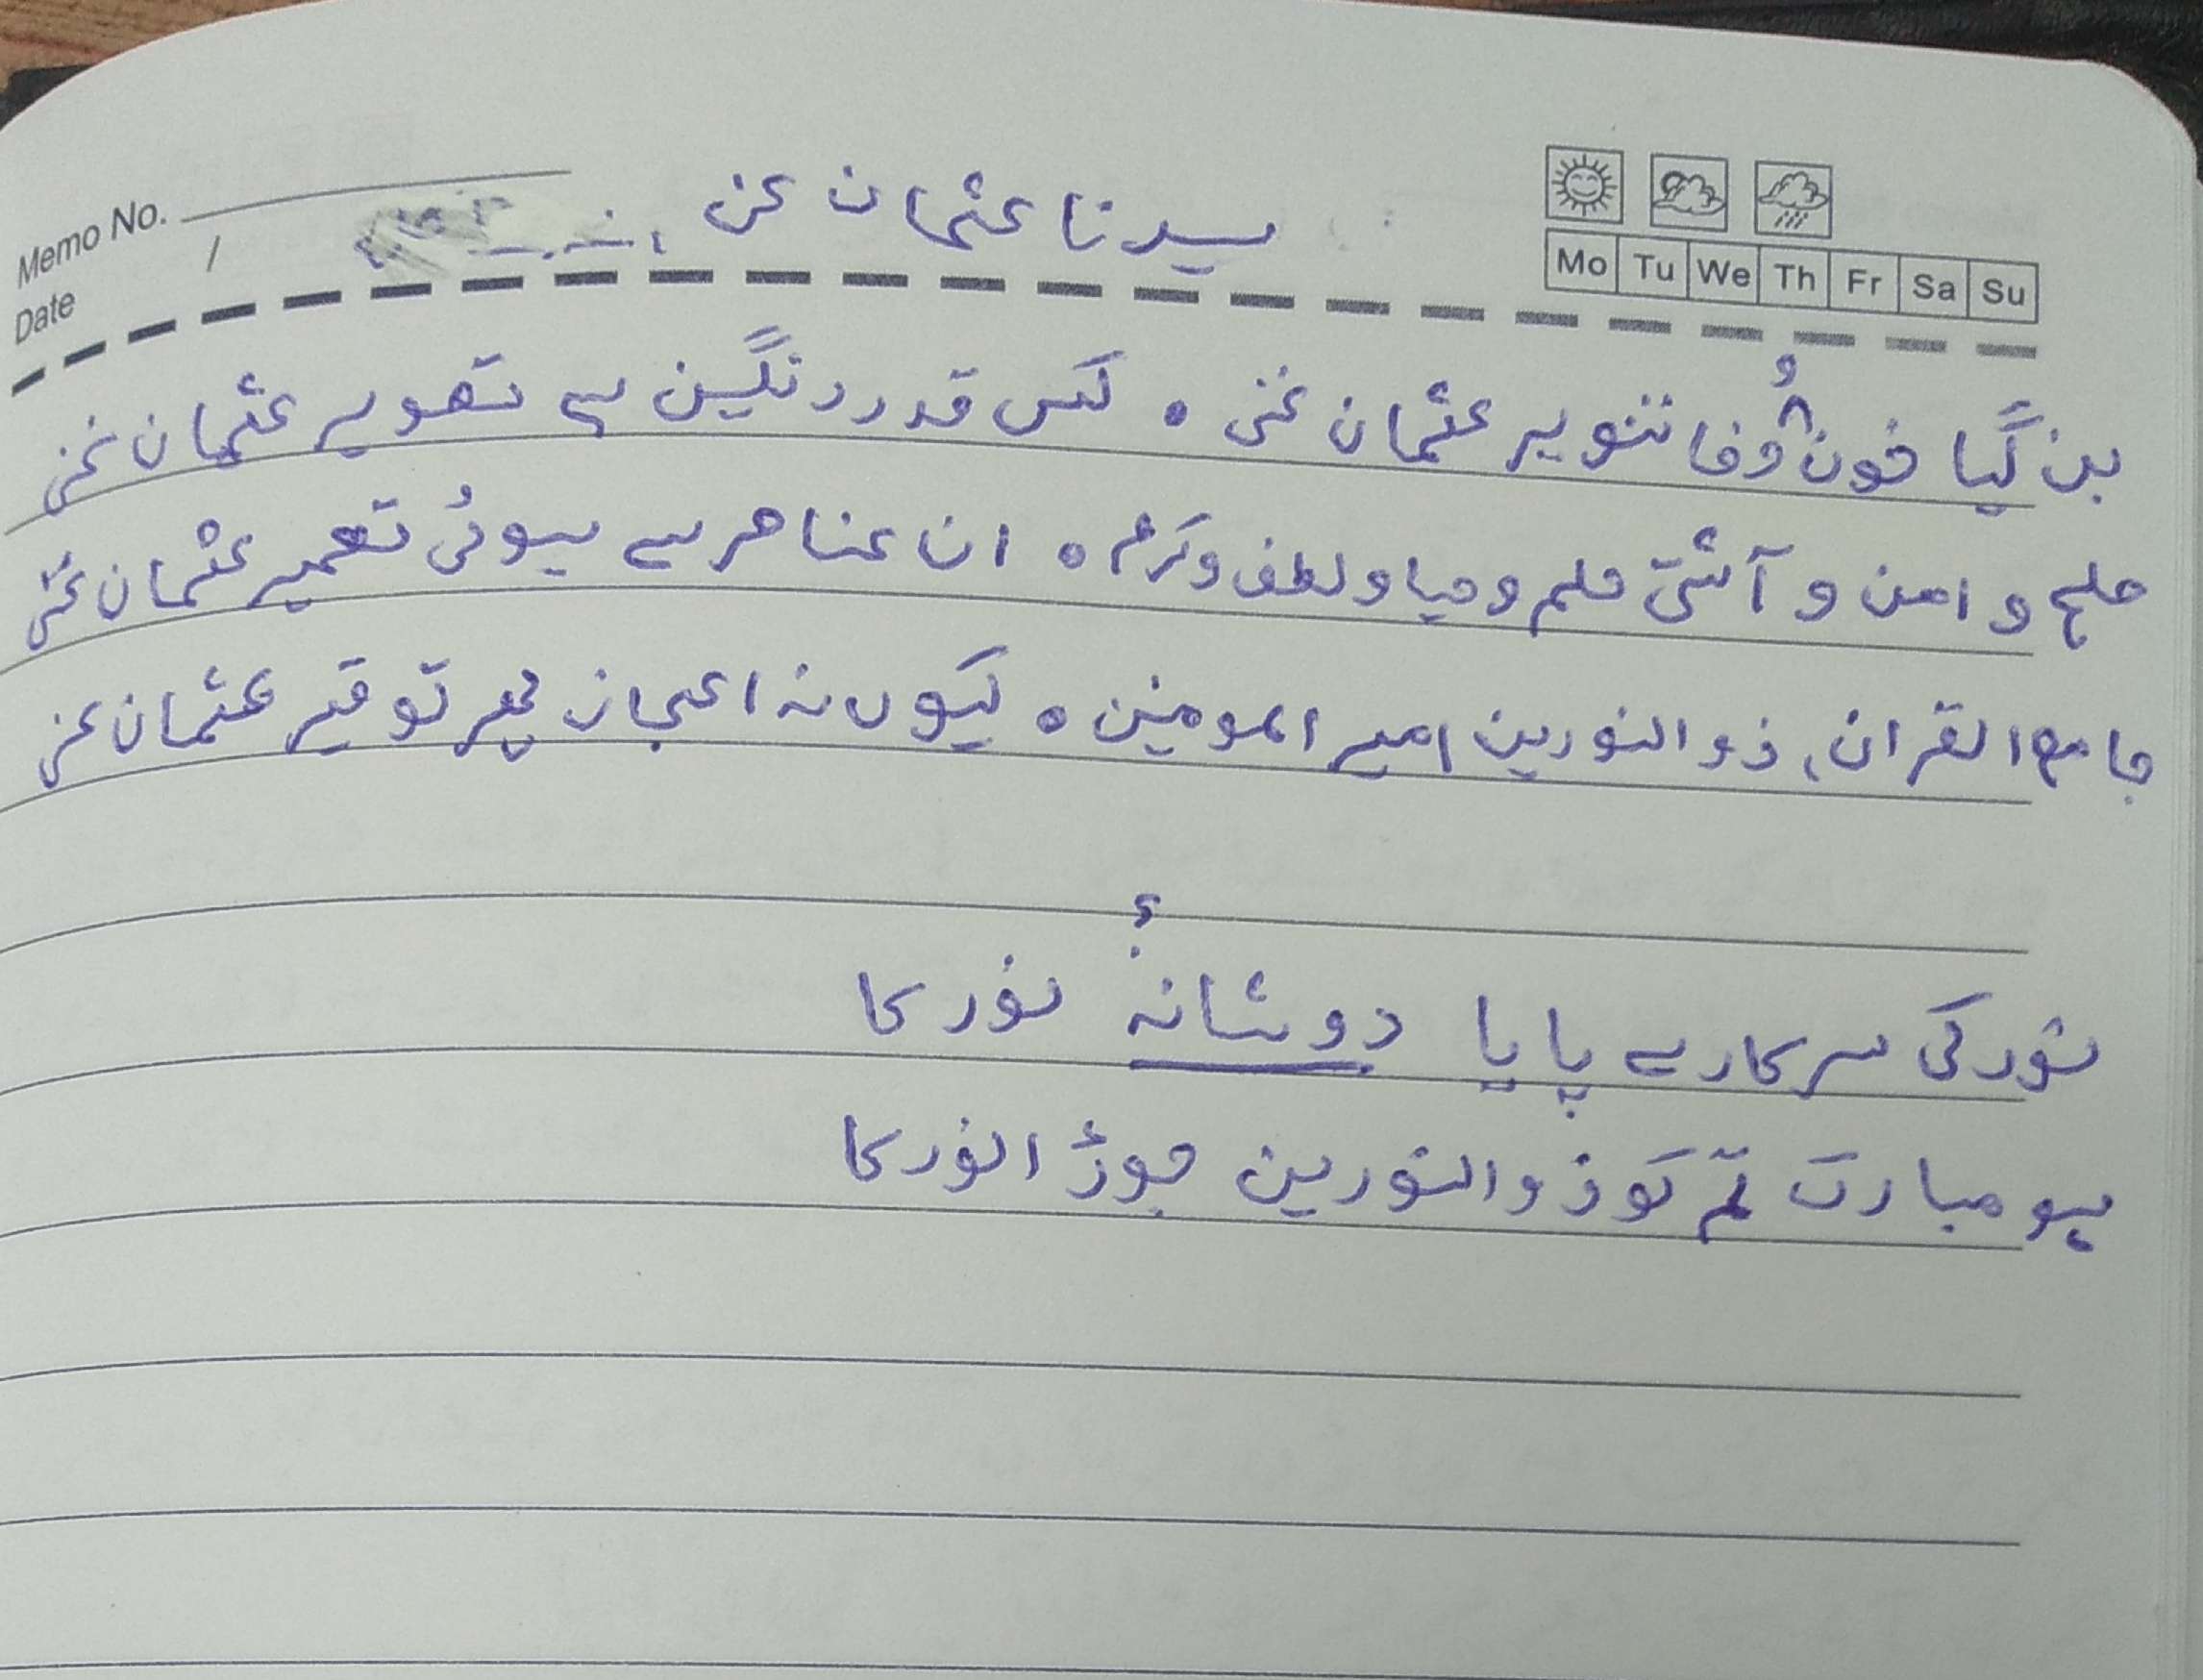 Memo No.
Date /
Mo Tu We Th Fr Sa Su
سیدنا عثمان غنی
بن گیا خون وُفا تنویر عثمان غنی ٥ کس قدر رنگین ہے تصویر عثمان غنی
صلح و امن و آشتی حلم و حیا و لطف و کرم ٥ ان عناصر سے ہوئی تعمیر عثمان غنی
جامع القران، ذوالنورین امیر المومنین ٥ کیوں نہ اعجاز پھر توقیر عثمان غنی
نور کی سرکار سے پایا دوشانہ نور کا
؟
ہو مبارک تم کو ذوالنورین جوڑا نور کا